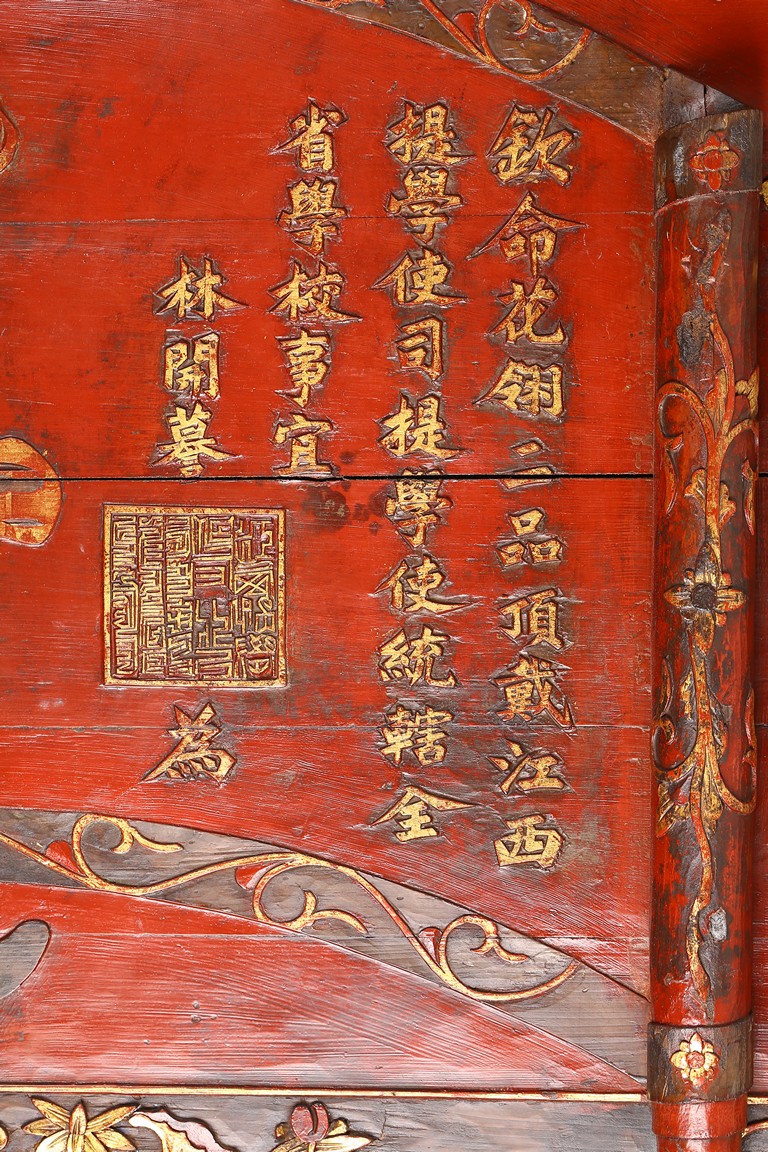 欽命花翎二品頂戴江西
提學使司提學使統轄全
省學校事宜
林開謩
為